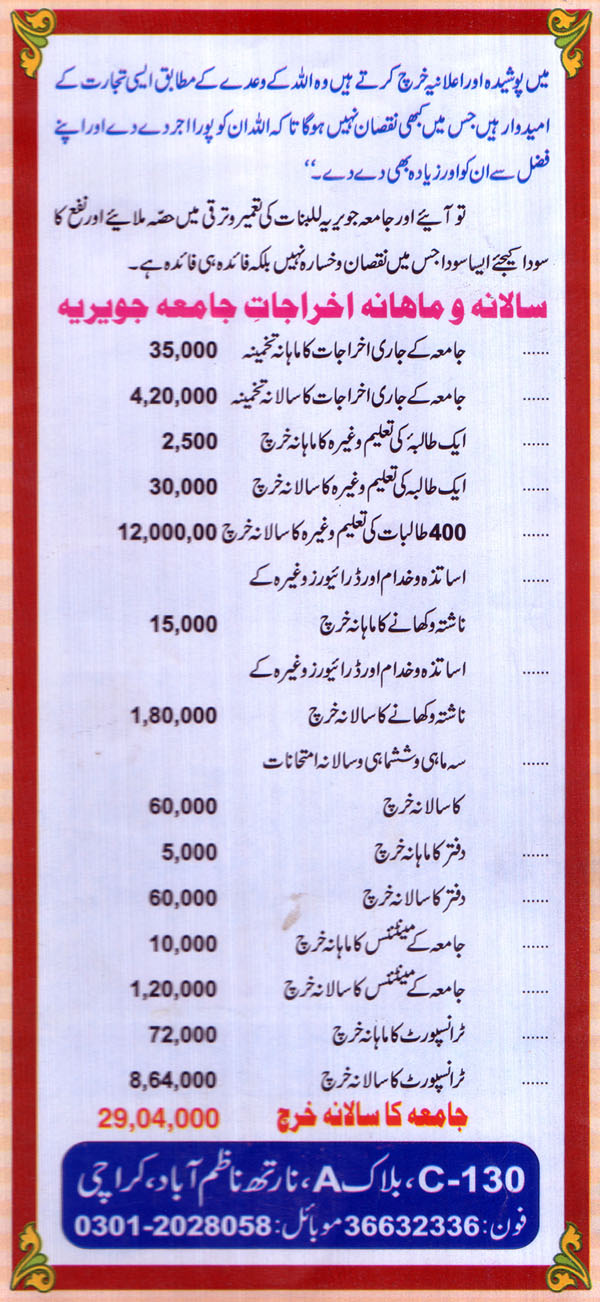 میں پوشیدہ اور اعلانیہ خرچ کرتے ہیں وہ اللہ کے وعدے کے مطابق ایسی تجارت کے
امیدوار ہیں جس میں کبھی نقصان نہیں ہوگا تاکہ اللہ ان کو پورا اجر دے دے اور اپنے
فضل سے ان کو اور زیادہ بھی دے دے۔‘‘
تو آیئے اور جامعہ جویریہ للبنات کی تعمیر و ترقی میں حصّہ ملایئے اور نفع کا
سودا کیجئے ایسا سودا جس میں نقصان و خسارہ نہیں بلکہ فائدہ ہی فائدہ ہے۔
سالانہ و ماھانہ اخراجاتِ جامعہ جویریہ
...... جامعہ کے جاری اخراجات کا ماہانہ تخمینہ 35,000
...... جامعہ کے جاری اخراجات کا سالانہ تخمینہ 4,20,000
...... ایک طالبۂ کی تعلیم وغیرہ کا ماہانہ خرچ 2,500
...... ایک طالبہ کی تعلیم وغیرہ کا سالانہ خرچ 30,000
...... 400 طالبات کی تعلیم وغیرہ کا سالانہ خرچ 12,000,00
...... اساتذہ و خدام اور ڈرائیورز وغیرہ کے
ناشتہ و کھانے کا ماہانہ خرچ 15,000
...... اساتذہ و خدام اور ڈرائیورز وغیرہ کے
ناشتہ و کھانے کا سالانہ خرچ 1,80,000
...... سہ ماہی و ششماہی و سالانہ امتحانات
کا سالانہ خرچ 60,000
...... دفتر کا ماہانہ خرچ 5,000
...... دفتر کا سالانہ خرچ 60,000
...... جامعہ کے مینٹنس کا ماہانہ خرچ 10,000
...... جامعہ کے مینٹنس کا سالانہ خرچ 1,20,000
...... ٹرانسپورٹ کا ماہانہ خرچ 72,000
...... ٹرانسپورٹ کا سالانہ خرچ 8,64,000
جامعہ کا سالانہ خرچ 29,04,000
C-130، بلاک A، نارتھ ناظم آباد، کراچی
فون: 36632336 موبائل: 0301-2028058